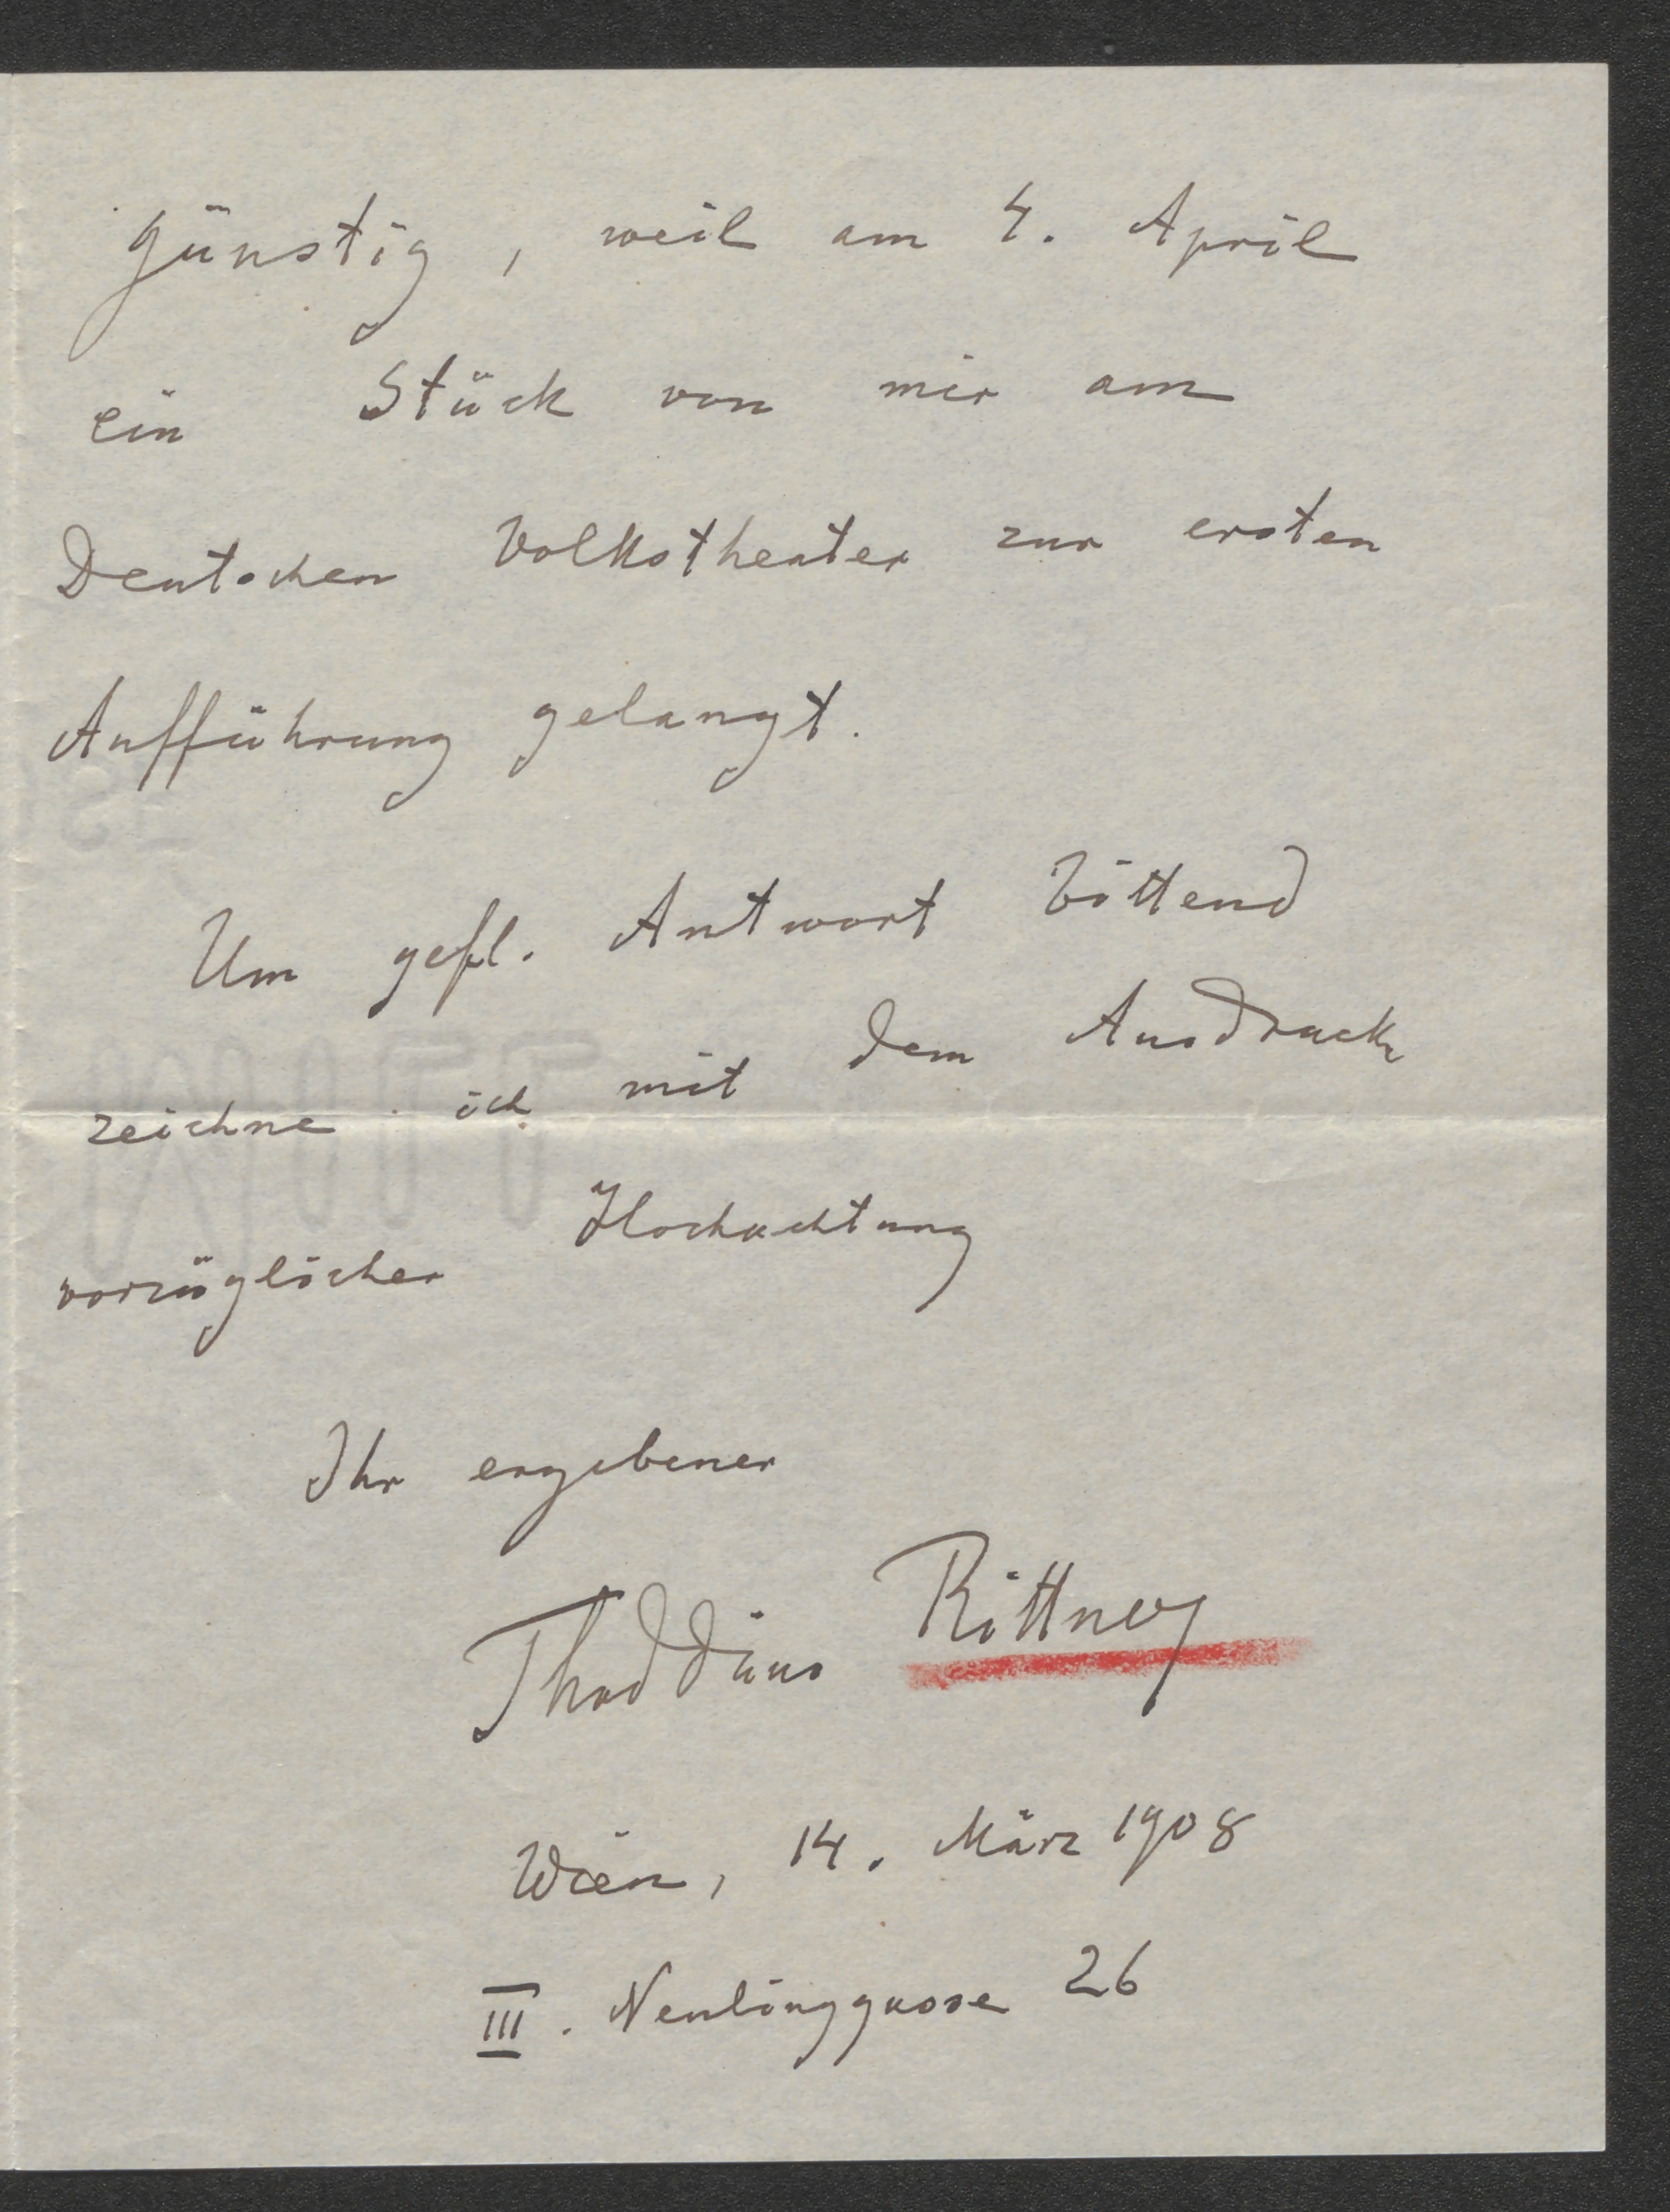 günstig, weil am 4. April
ein Stück von mir am
Deutschen Volkstheater zur ersten
Aufführung gelangt.
Um gefl. Antwort bittend
zeichne ich mit dem Ausdruck
vorzüglicher Hochachtung
Ihr ergebener
Thaddäus Rittner
Wien, 14. März 1908
III. Neulinggasse 26